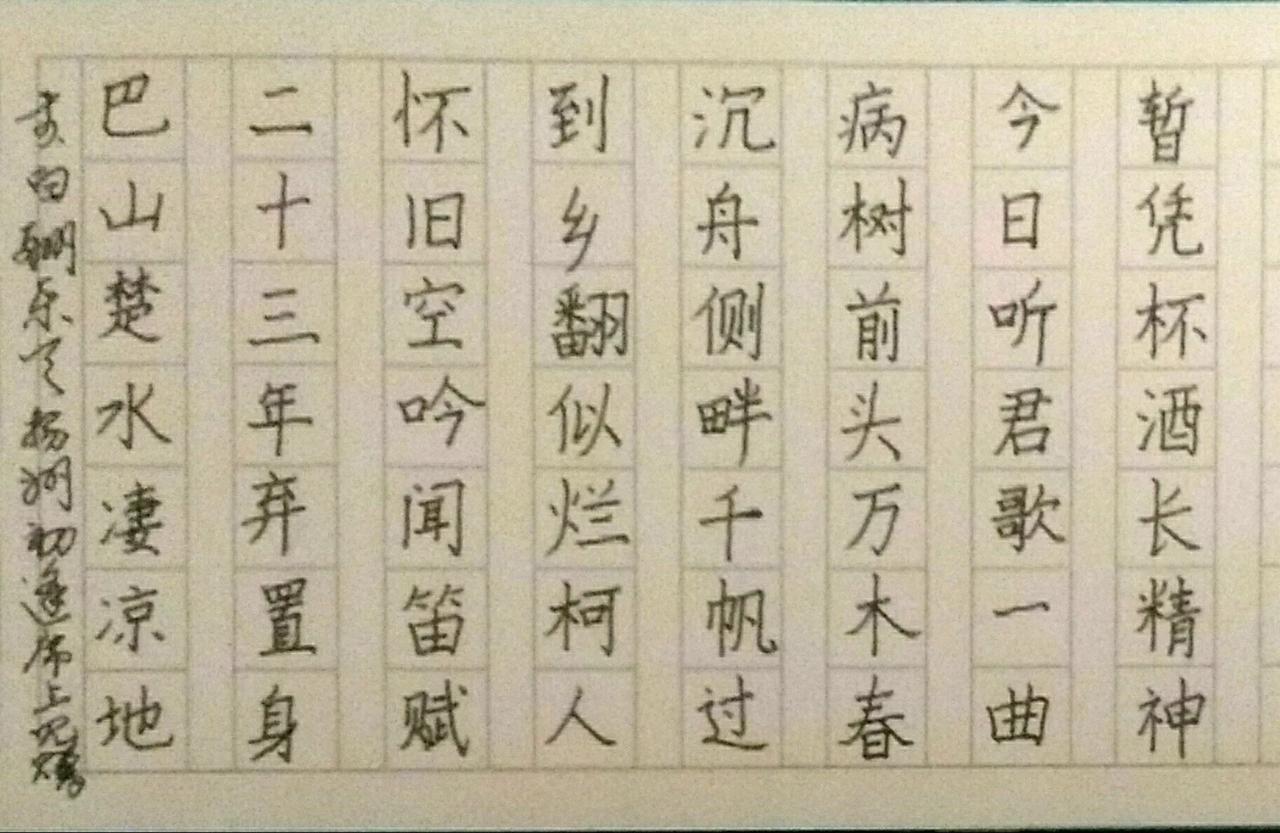 白酬乐天扬州初逢席上见赠
巴山楚水凄凉地
二十三年弃置身
怀旧空吟闻笛赋
到乡翻似烂柯人
沉舟侧畔千帆过
病树前头万木春
今日听君歌一曲
暂凭杯酒长精神